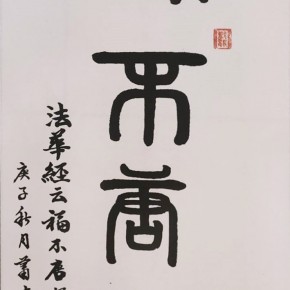 不唐
法華經云福不唐
庚子秋月蕭